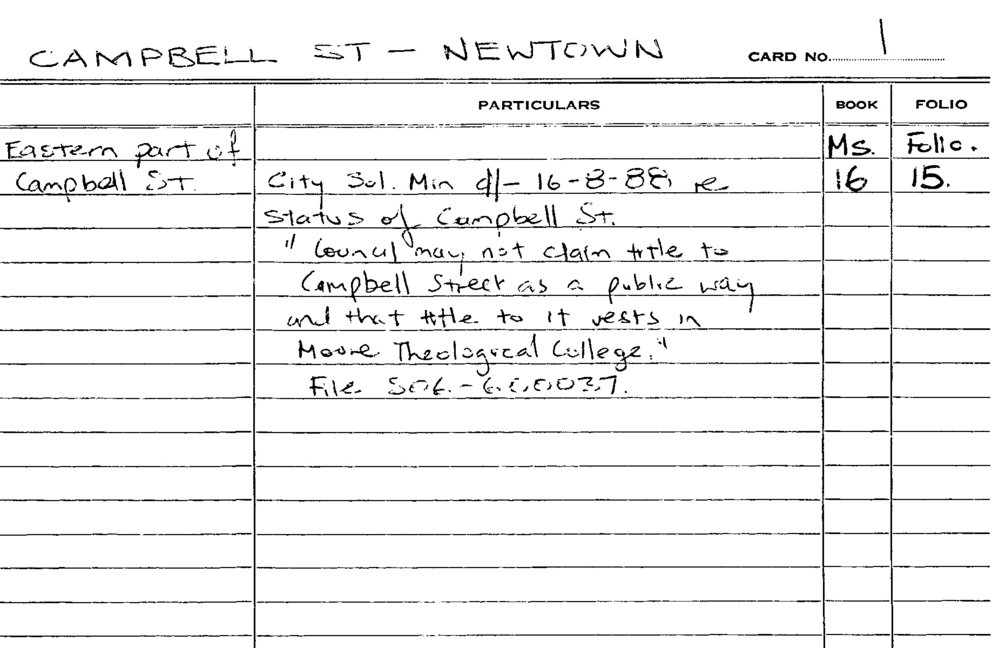 CAMPBELL ST - NEWTOWN CARD NO. 1
PARTICULARS BOOK FOLIO
Eastern part of Ms. Folio.
Campbell ST. City Sol. Min d/- 16-8-88 re 16 15.
status of Campbell St.
" Council may not claim title to
Campbell Street as a public way
and that title to it vests in
Moore Theological College."
File S06.-